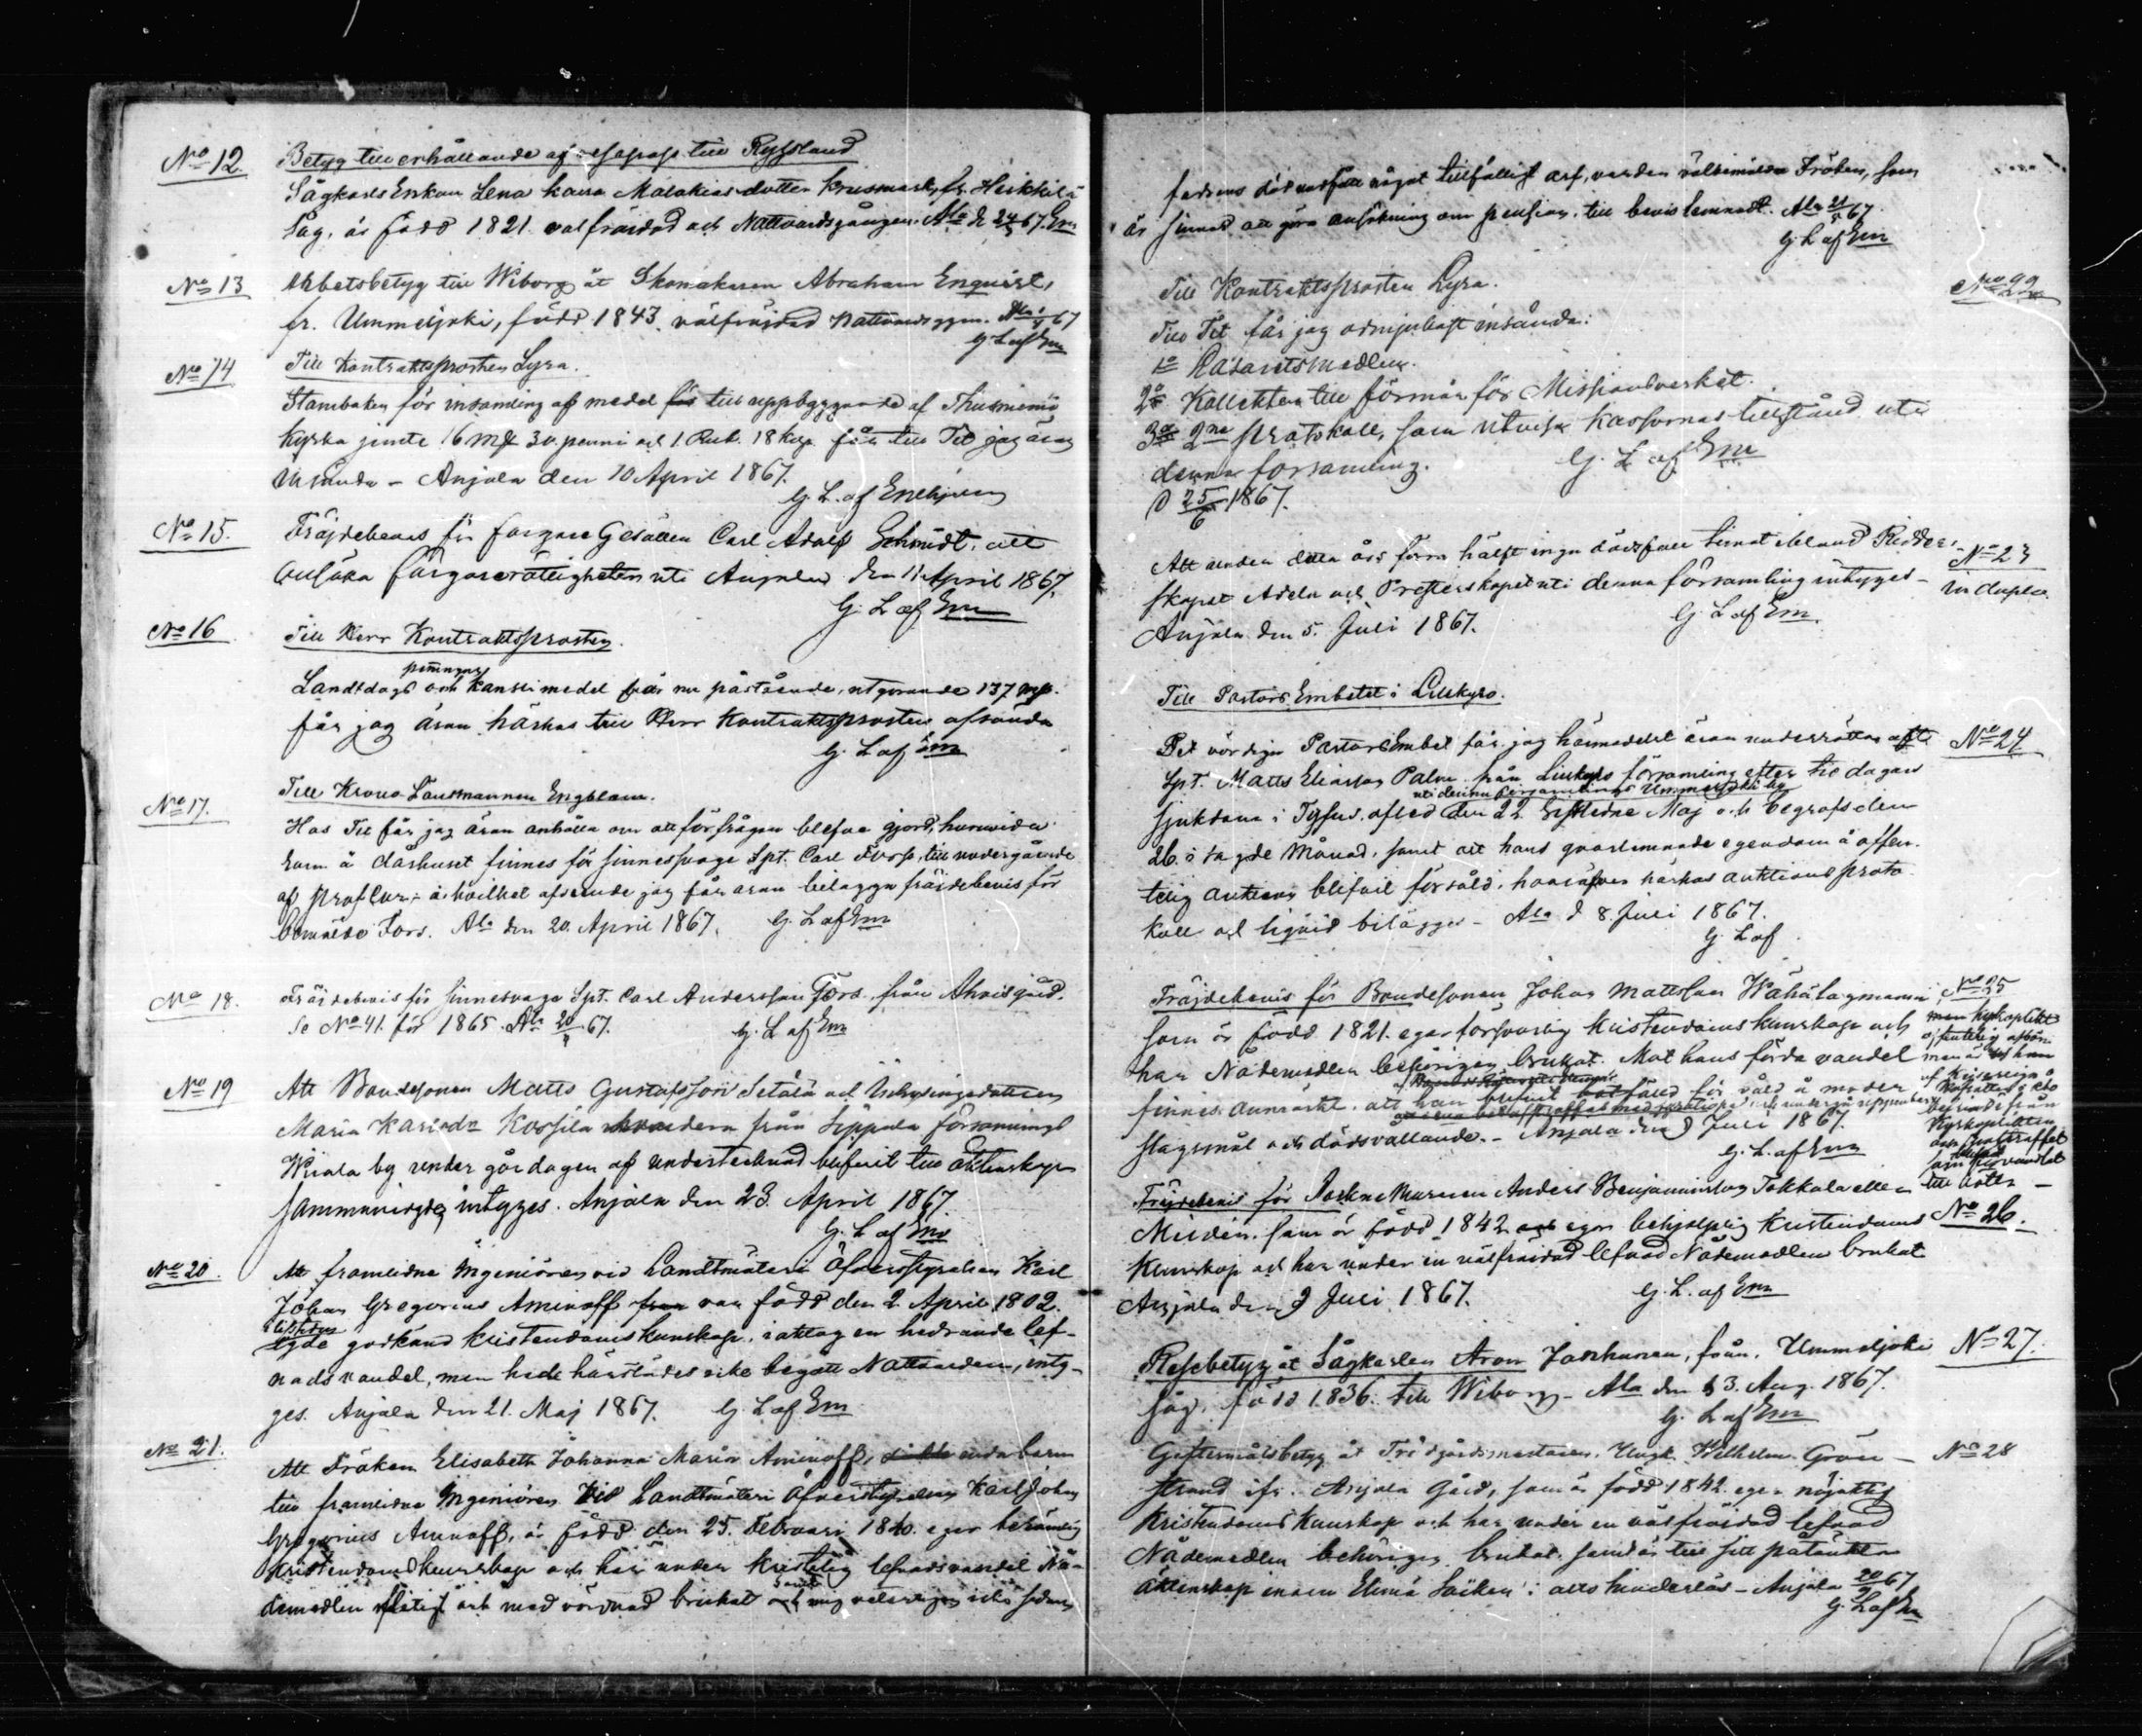 No 12. Betyg till erhållande af respass till Ryssland
Sågkarls Enkan Lena Kaisa Malakiasdotter Krusmark, fr. Heikkilä
Såg, är född 1821. välfräjdad och Nattvardsgången. Ala d. 24/67. Em
No 13 Arbetsbetyg till Wiborg åt Skomakaren Abraham Enquist,
fr. Ummeljoki, född 1843. välfräjdad nattvardsgången. Ala 67
G L af Em
No 14 Till Kontraktsprosten Lyra.
Stamboken för insamling af medel för till uppbyggande af Thusniemi
Kyrka jemte 16 mk 30. penni och 1. Rub. 18 kop. får till Tit jag äran
insända – Anjala den 10 April 1867.
G. L. af Enehjelm
No 15. Fräjdebevis för färgare Gesällen Carl Adolf Schmidt, att
ansöka färgarerättigheten uti Anjala den 11 April 1867.
G. L af Em
No 16 Till Herr Kontraktsprosten.
penningar
Landtdags och Kanslimedel från nu påstående, utgörande 137 mk.
får jag äran härhos till Herr Kontraktsprosten afsända
G. L af Em
No 17. Till Krono Länsmannen Engblom.
Hos Tit får jag äran anhålla om att förfrågan blefve gjord, huruvida
rum å dårhuset finnes för sinnessvage Spt. Carl Fors, till undergående
af prof Cur; i hvilket afseende jag får äran bilägga fräjdebevis för
bemälde Fors. Ala den 20. April 1867. G. L af Em
No 18. Fräjdebevis för sinnesvage Spt. Carl Andersson Fors från Ahvisgård.
Se No 41. för 1865. Ala 20/4 67. G. L af Em
No 19 Att Bondesonen Matts Gustafsson Setälä och Inhysingsdottren
Maria Karlsdr Kossila från Sippola församlings
Wiiala by under gårdagen af undertecknad blifvit till äktenskap
sammanvigda, intygas. Anjala den 23. April 1867.
G. L af Em
No 20. Att framlidne Ingeniören vid Landtmäteri Öfverstyrelsen Karl
Johan Gregorius Aminoff från var född den 2. April 1802.
i lifstiden
egde godkänd kristendomskunskap, iakttog en hedrande lef-
nadsvandel, men hade härstädes icke begått Nattvarden, inty-
gas. Anjala den 21. Maj 1867. G. L af Em
No 21. Att Fröken Elisabeth Johanna Maria Aminoff, enda barn
till framlidne Ingeniören vid Landtmäteri Öfverstyrelsen Karl Johan
Gregorius Aminoff, är född den 25. Februari 1840. eger berömlig
Kristendomskunskap och har under kristelig lefnadsvandel Nå-
demedlen flitigt och med vördnad brukat samt mig veterligen icke sedan
fadrens död undfått något tillfälligt arf, varder välbemälde Fröken, som
är sinnad att göra ansökning om pension, till bevis lemnadt. Ala 21/5 67.
G L af Em
Till Kontraktsprosten Lyra. No 22
Till Tit får jag ödmjukast insända:
1o Vasarits medlen.
2o Kollekten till förmån för Missionsverket.
3o 2ne protokoll, som utvisa kassornas tillstånd uti
denna församling. G. L af Em
D 25/6 1867.
Att under detta års förra hälft inga dödsfall timat ibland Ridder- No 23
skapet Adeln och Presterskapet uti denna församling intygas – in duplo.
Anjala den 5. Juli 1867. G. L af Em.
Till Pastors Embetet i Lillkyro.
Det vördiga Pastors Embet får jag härmedelst äran underrätta att No 24
Spt. Matts Eliasson Palm från Lillkyro församling efter tre dagars
uti denna församlings Ummeljoki by
sjukdom i Tyfus, afled den 22. sistledne Maj och begrofs den
26. i sagde Månad, samt att hans qvarlemnade egendom å offen-
telig auktion blifvit försåld, hvaröfver härhos auktions proto-
koll och liqvid bilägges – Ala d 8. Juli 1867.
G. L af
Fräjdebevis för Bondesonen Johan Mattsson Wähätagmanni, No 25
som är född 1821. eger försvarlig kristendomskunskap och
har Nådemedlen behörigen brukat. Mot hans förda vandel
finnes anmärkt, att han blifvit fäld för våld å moder
slagsmål och dödsvållande. – Anjala den 9 Juli 1867.
G. L. af Em
till orten –
Fräjdebevis för Sockne Murmannen Anders Benjaminsson Tokkala eller
Meiden, som är född 1842 och eger behjelplig Kristendoms No 26.
Kunskap och har under en välfräjdad lefnad Nådemedlen brukat
Anjala den 9 Juli 1867. G. L. af Em
Resebetyg åt Sågkarlen Aron Janhunen, från Ummeljoki No 27.
såg, född 1836. till Wiborg – Ala den 13. Aug. 1867.
G. L af Em
Giftermålsbetyg åt Trädgårdsmästaren, Ungk. Wilhelm Grön- No 28
strand ifr. Anjala Gård, som är född 1842. eger nöjaktig
Kristendoms Kunskap och har under en välfräjdad lefnad
Nådemedlen behörigen brukat, samt är till sitt påtänkta
äktenskap inom Elimä Socken: allts hinderlös – Anjala 20/9 67
G. L af Em